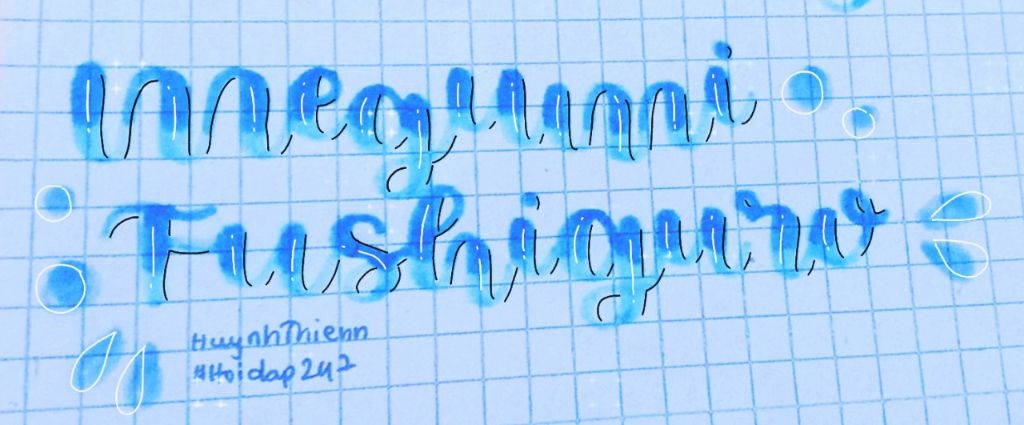 Megumi
Fushiguro
HuynhThienn
#Hoidap247